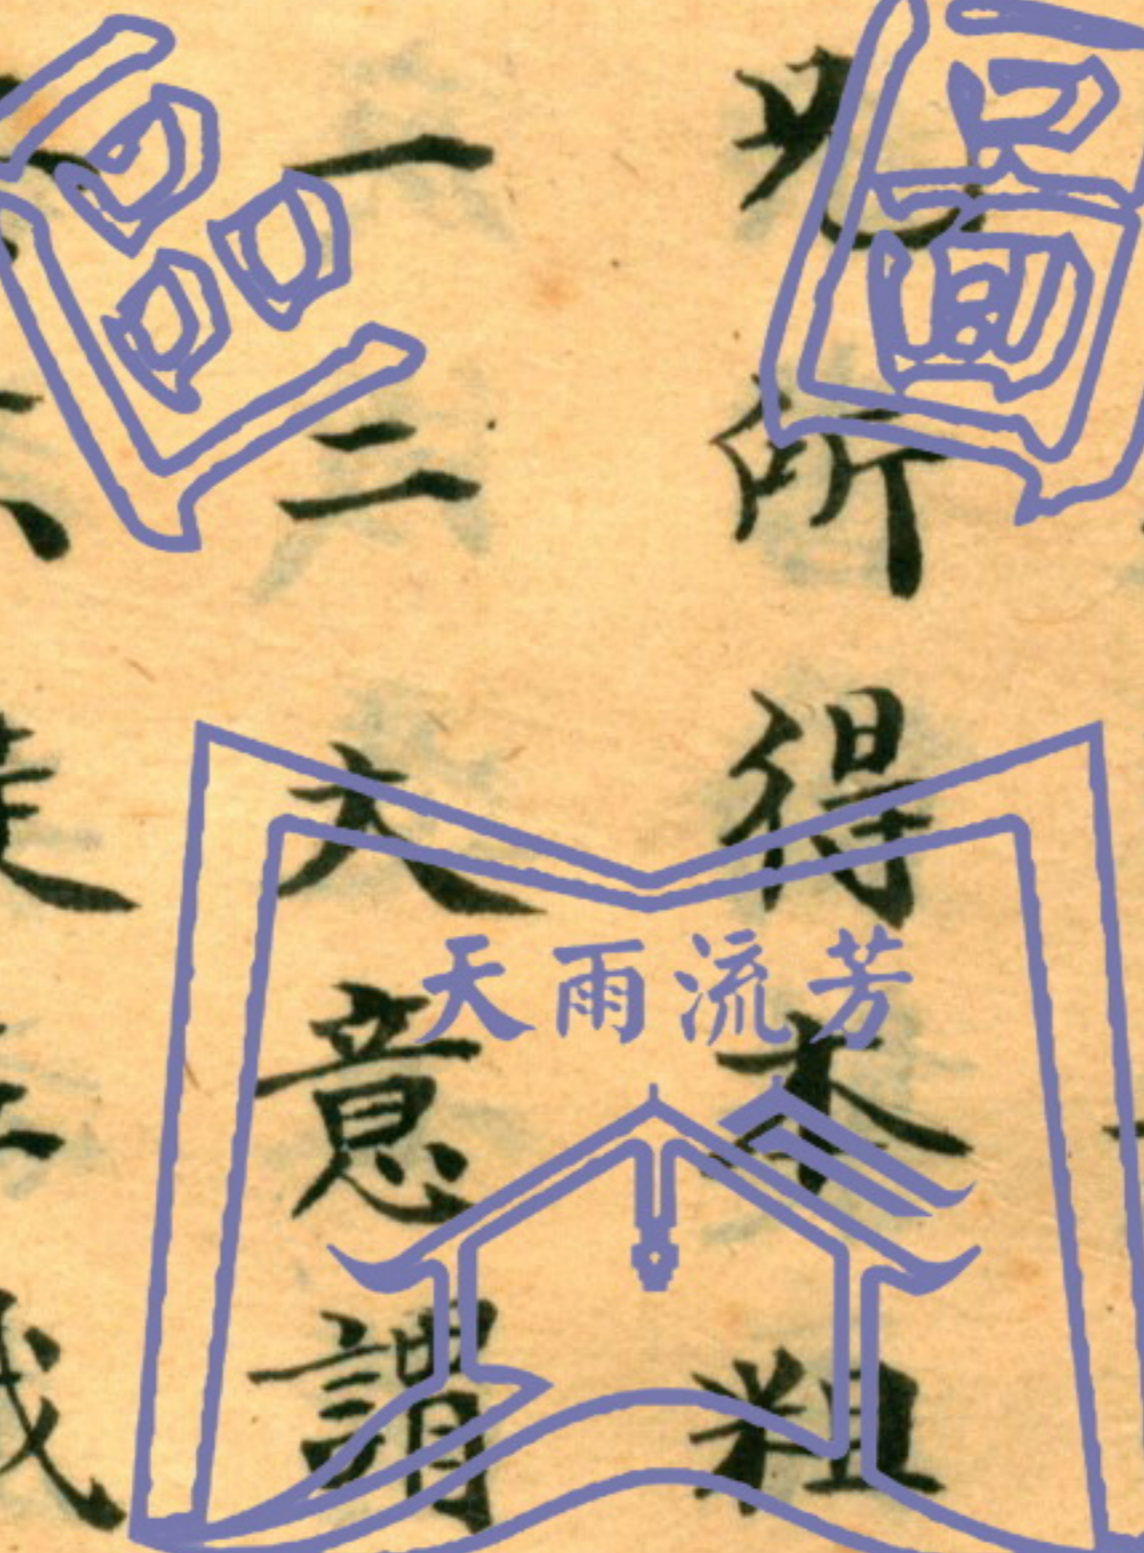 所得本粗
一二大意謂
區圖
天雨流芳